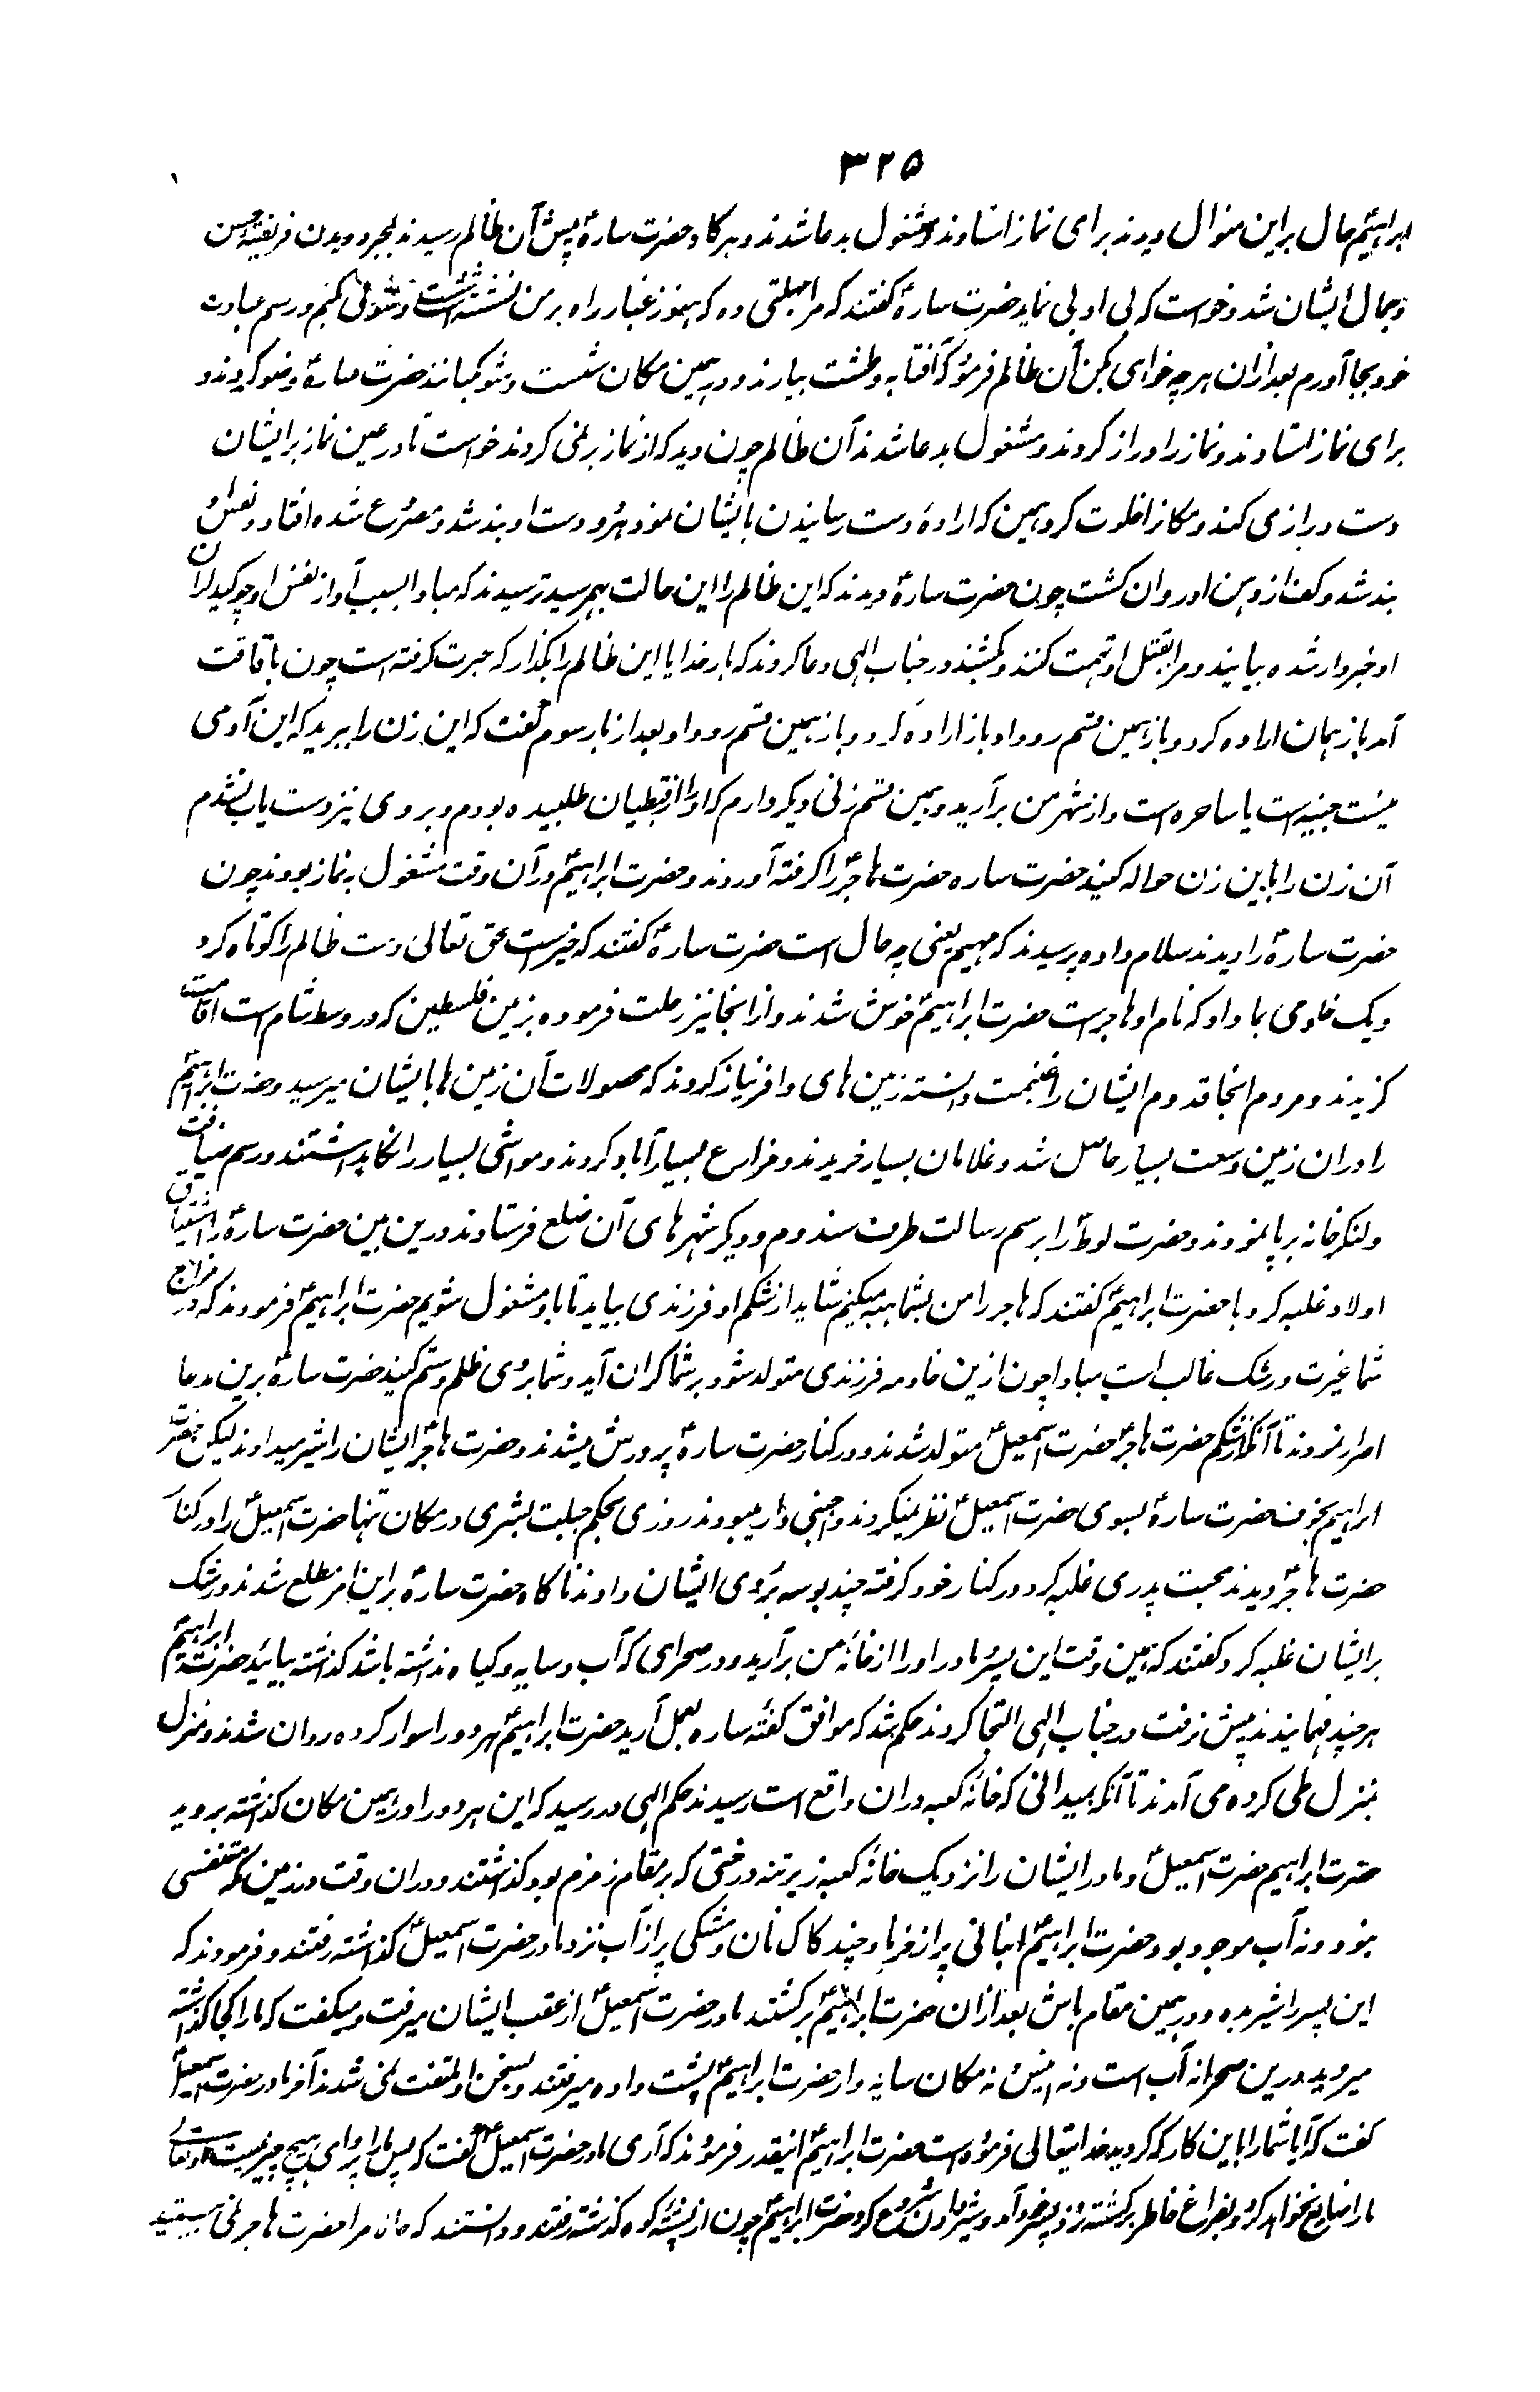 ۳۲۵
ابراهیمؑ حال براین منوال دیدند برای نماز استادند و مشغول بدعا شدند و هرگاه حضرت سارهؑ پیش آن ظالم رسیدند بمجرد دیدن فریفتهٔ حسن
و جمال ایشان شد و خواست که بی ادبی نماید حضرت سارهؑ گفتند که مرا مهلتی ده که هنوز غبار راه بر من نشسته است شست و شوئی کنم و رسم عبادت
خود بجا آورم بعد ازان هر چه خواهی بکن آن ظالم فرمود که آفتابه و طشت بیارند و در همین مکان شست و شو کنانند حضرت سارهؑ وضو کردند و
برای نماز استادند و نماز را دراز کردند و مشغول بدعا شدند آن ظالم چون دید که از نماز بر نمی گردند خواست تا در عین نماز بر ایشان
دست درازی کند و مکان را خلوت کرد همین که ارادهٔ دست رسانیدن بایشان نمود هر دو دست او بند شد و مصروع شده افتاد و نفس او
بند شد و کف از دهن او روان گشت چون حضرت سارهؑ دیدند که این ظالم را این حالت بهم رسید ترسیدند که مبادا بسبب آواز نفس او چوکیداران
او خبردار شده بیایند و مرا بقتل او تهمت کنند و بکشند در جناب الهی دعا کردند که بار خدایا این ظالم را بگذار که عبرت گرفته است چون بافاقت
آمد باز همان اراده کرد و باز همین قسم رو داد باز اراده کرد و باز همین قسم رو داد بعد از بار سوم گفت که این زن را ببرید که این آدمی
نیست جنیه است یا ساحره است و از شهر من بر آرید و همین قسم زنی دیگر دارم که او را از قبطیان طلبیده بودم و بر وی نیز دست یاب نشدم
آن زن را باین زن حواله کنید حضرت ساره حضرت هاجرؑ را گرفته آوردند و حضرت ابراهیمؑ در آن وقت مشغول به نماز بودند چون
حضرت سارهؑ را دیدند سلام داده پرسیدند که مهیم یعنی چه حال است حضرت سارهؑ گفتند که خیر است حق تعالی دست ظالم را کوتاه کرد
و یک خادمی بما داد که نام او هاجر است حضرت ابراهیمؑ خوش شدند و از انجا نیز رحلت فرموده بزمین فلسطین که در وسط شام است اقامت
گزیدند و مردم انجا قدوم ایشان را غنیمت دانسته زمین های وافر نیاز کردند که محصولات آن زمین ها بایشان میرسید و حضرت ابراهیمؑ
را دران زمین وسعت بسیار حاصل شد و غلامان بسیار خریدند و مزارع بسیار آباد کردند و مواشی بسیار را نگاه داشتند و رسم ضیافت
و لنگر خانه بر پا نمودند و حضرت لوطؑ را برسم رسالت طرف سدوم و دیگر شهرهای آن ضلع فرستادند درین بین حضرت سارهؑ را اشتیاق
اولاد غلبه کرد با حضرت ابراهیمؑ گفتند که هاجر را من بشما هبه میکنم شاید از شکم او فرزندی بیاید تا باو مشغول شویم حضرت ابراهیمؑ فرمودند که در مزاج
شما غیرت و رشک غالب است مبادا چون ازین خادمه فرزندی متولد شود بر شما گران آید و شما بروی ظلم و ستم کنید حضرت سارهؑ برین مدعا
اصرار نمودند تا آنکه از شکم حضرت هاجرؑ حضرت اسمعیلؑ متولد شدند و در کنار حضرت سارهؑ پرورش میشدند و حضرت هاجرؑ ایشان را شیر میدادند لیکن حضرت
ابراهیم بخوف حضرت سارهؑ بسوی حضرت اسمعیلؑ نظر نمیکردند و اجنبی وار میبودند روزی بحکم جبلت بشری در مکان تنها حضرت اسمعیلؑ را در کنار
حضرت هاجرؑ دیدند محبت پدری غلبه کرد در کنار خود گرفته چند بوسه بروی ایشان دادند ناگاه حضرت سارهؑ بر این امر مطلع شدند و رشک
بر ایشان غلبه کرد گفتند که همین وقت این پسر و مادر او را از خانهٔ من بر آرید و در صحرای که آب و سایه و گیاه نداشته باشد گذاشته بیائید حضرت ابراهیمؑ
هر چند فهمایدند پیش نرفت در جناب الهی التجا کردند حکم شد که موافق گفتهٔ ساره بعمل آرید حضرت ابراهیمؑ هر دو را سوار کرده روان شدند و منزل
بمنزل طی کرده می آمدند تا آنکه بمیدانی که خانهٔ کعبه دران واقع است رسیدند حکم الهی در رسید که این هر دو را در همین مکان گذاشته بروید
حضرت ابراهیم حضرت اسمعیلؑ و مادر ایشان را نزدیک خانهٔ کعبه زیر تنهٔ درختی که بر مقام زمزم بود گذاشتند و دران وقت در زمین مکه متنفسی
نبود و نه آب موجود بود حضرت ابراهیمؑ انبانی پر از خرما و چند کاک نان و مشکی پر از آب نزد مادر حضرت اسمعیلؑ گذاشته رفتند و فرمودند که
این پسر را شیر بده و در همین مقام باش بعد ازان حضرت ابراهیمؑ بر گشتند مادر حضرت اسمعیلؑ از عقب ایشان میرفت و میگفت که ما را کجا گذاشته
میروید درین صحرا نه آب است و نه انیس و نه مکان سایه دار حضرت ابراهیمؑ پشت داده میرفتند و بسخن او ملتفت نمی شدند آخر مادر حضرت اسمعیلؑ
گفت که آیا شما را باین کار که کردید خدایتعالی فرموده است حضرت ابراهیمؑ اینقدر فرمودند که آری مادر حضرت اسمعیلؑ گفت که پس ما را پروای هیچ چیز نیست
ما را ضایع نخواهد کرد و بفراغ خاطر برگشته نزد پسر خود آمد و شیر دادن شروع کرد حضرت ابراهیمؑ چون از پشتهٔ کوه گذشته رفتند و دانستند که حالا مرا حضرت هاجر نمی بینند